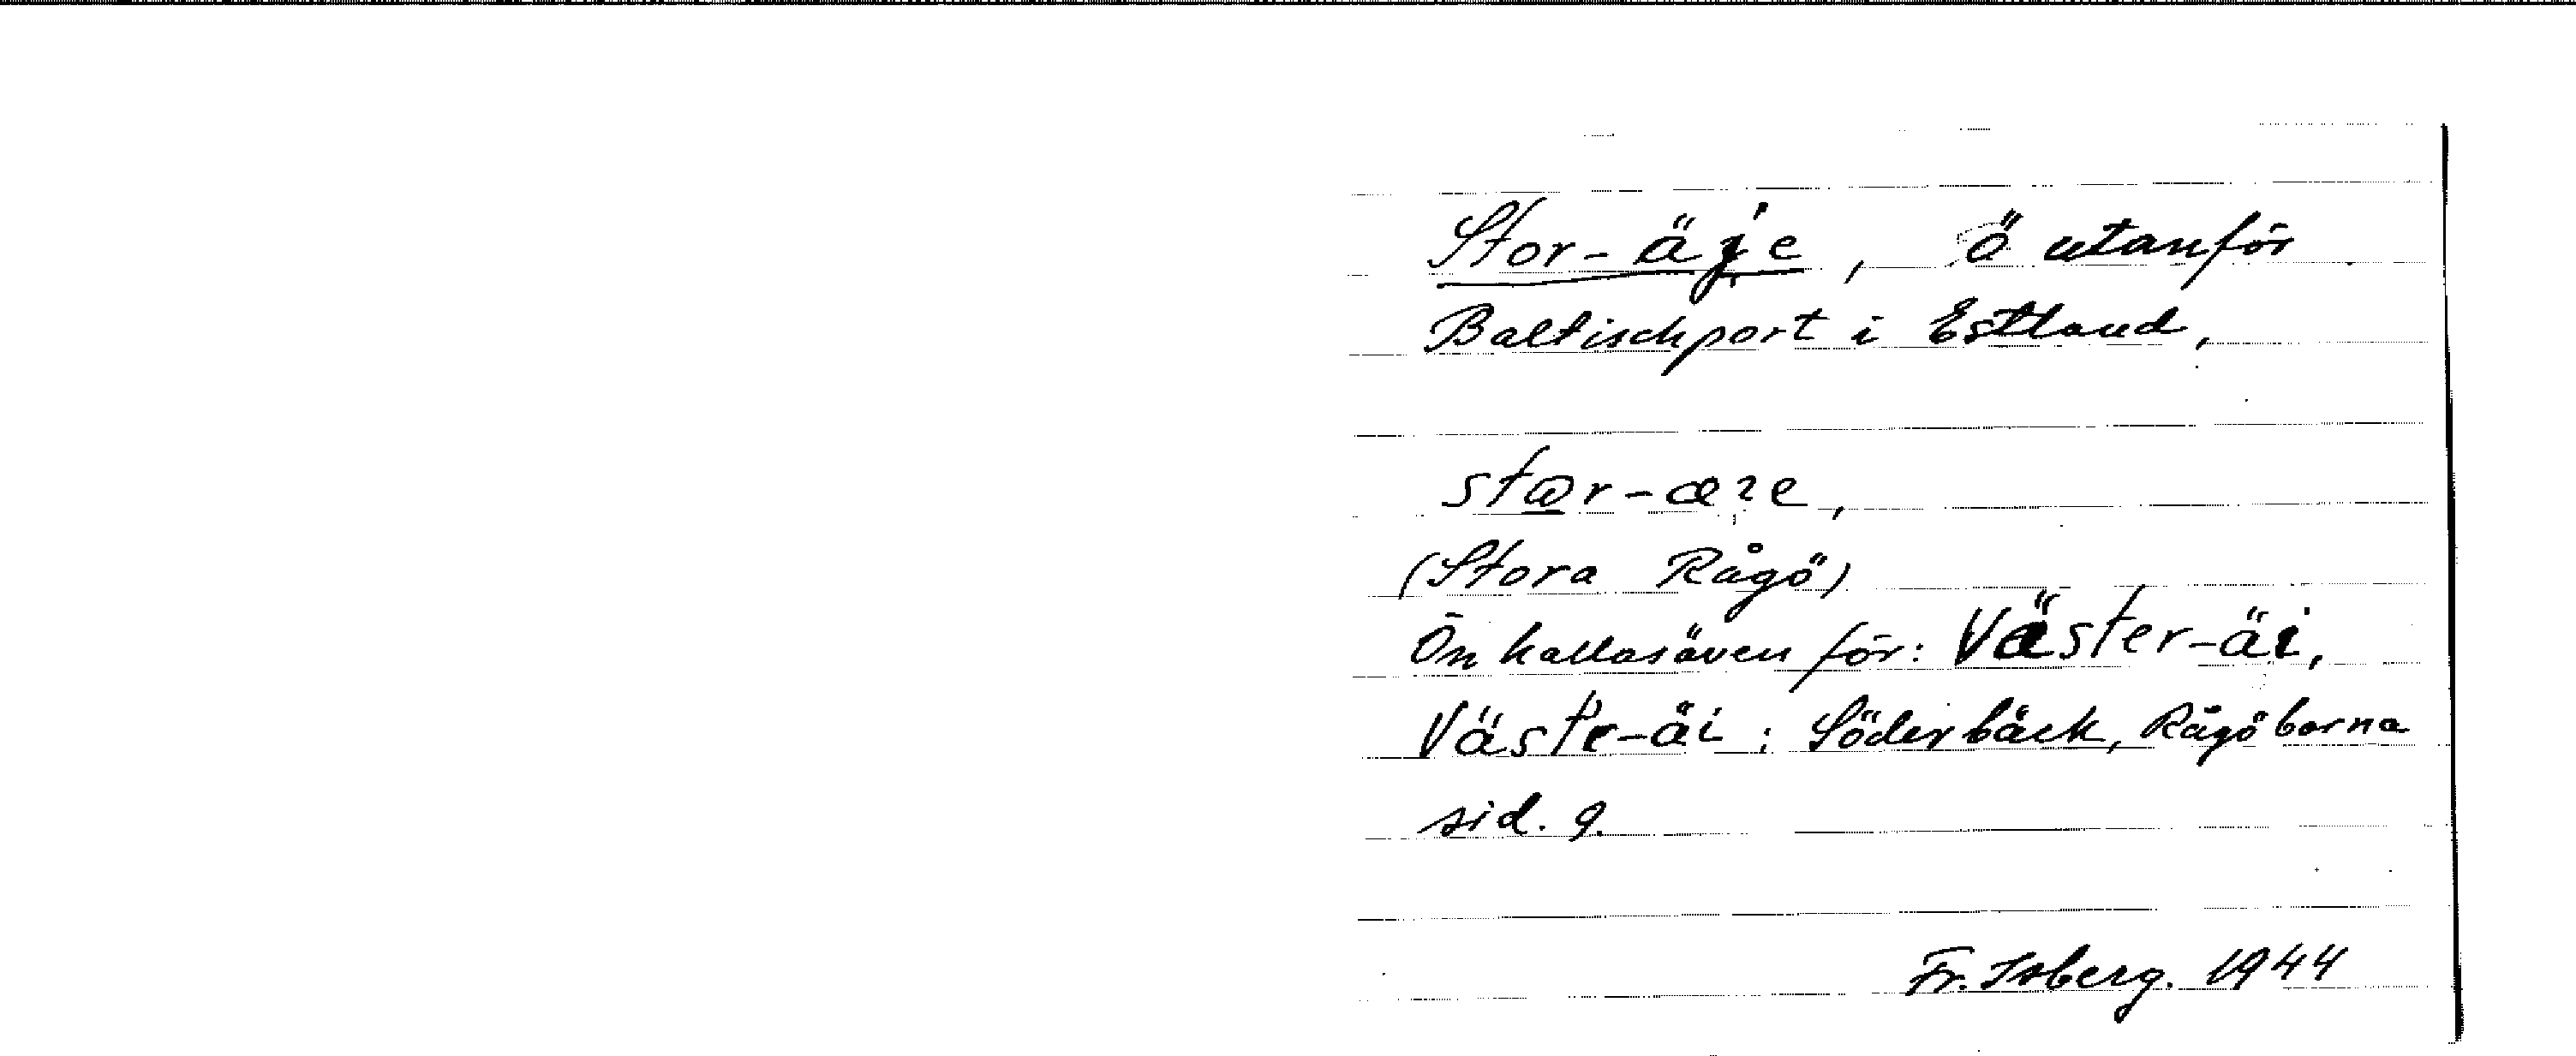 Stor-äje, ö utanför
Baltischport i Estland,
(Stora Rågö)
Ön kallas även för: Väster-äi,
Väste-äi; Söderbäck, Rågöborna
sid. 9.
Fr. Isberg. 1944